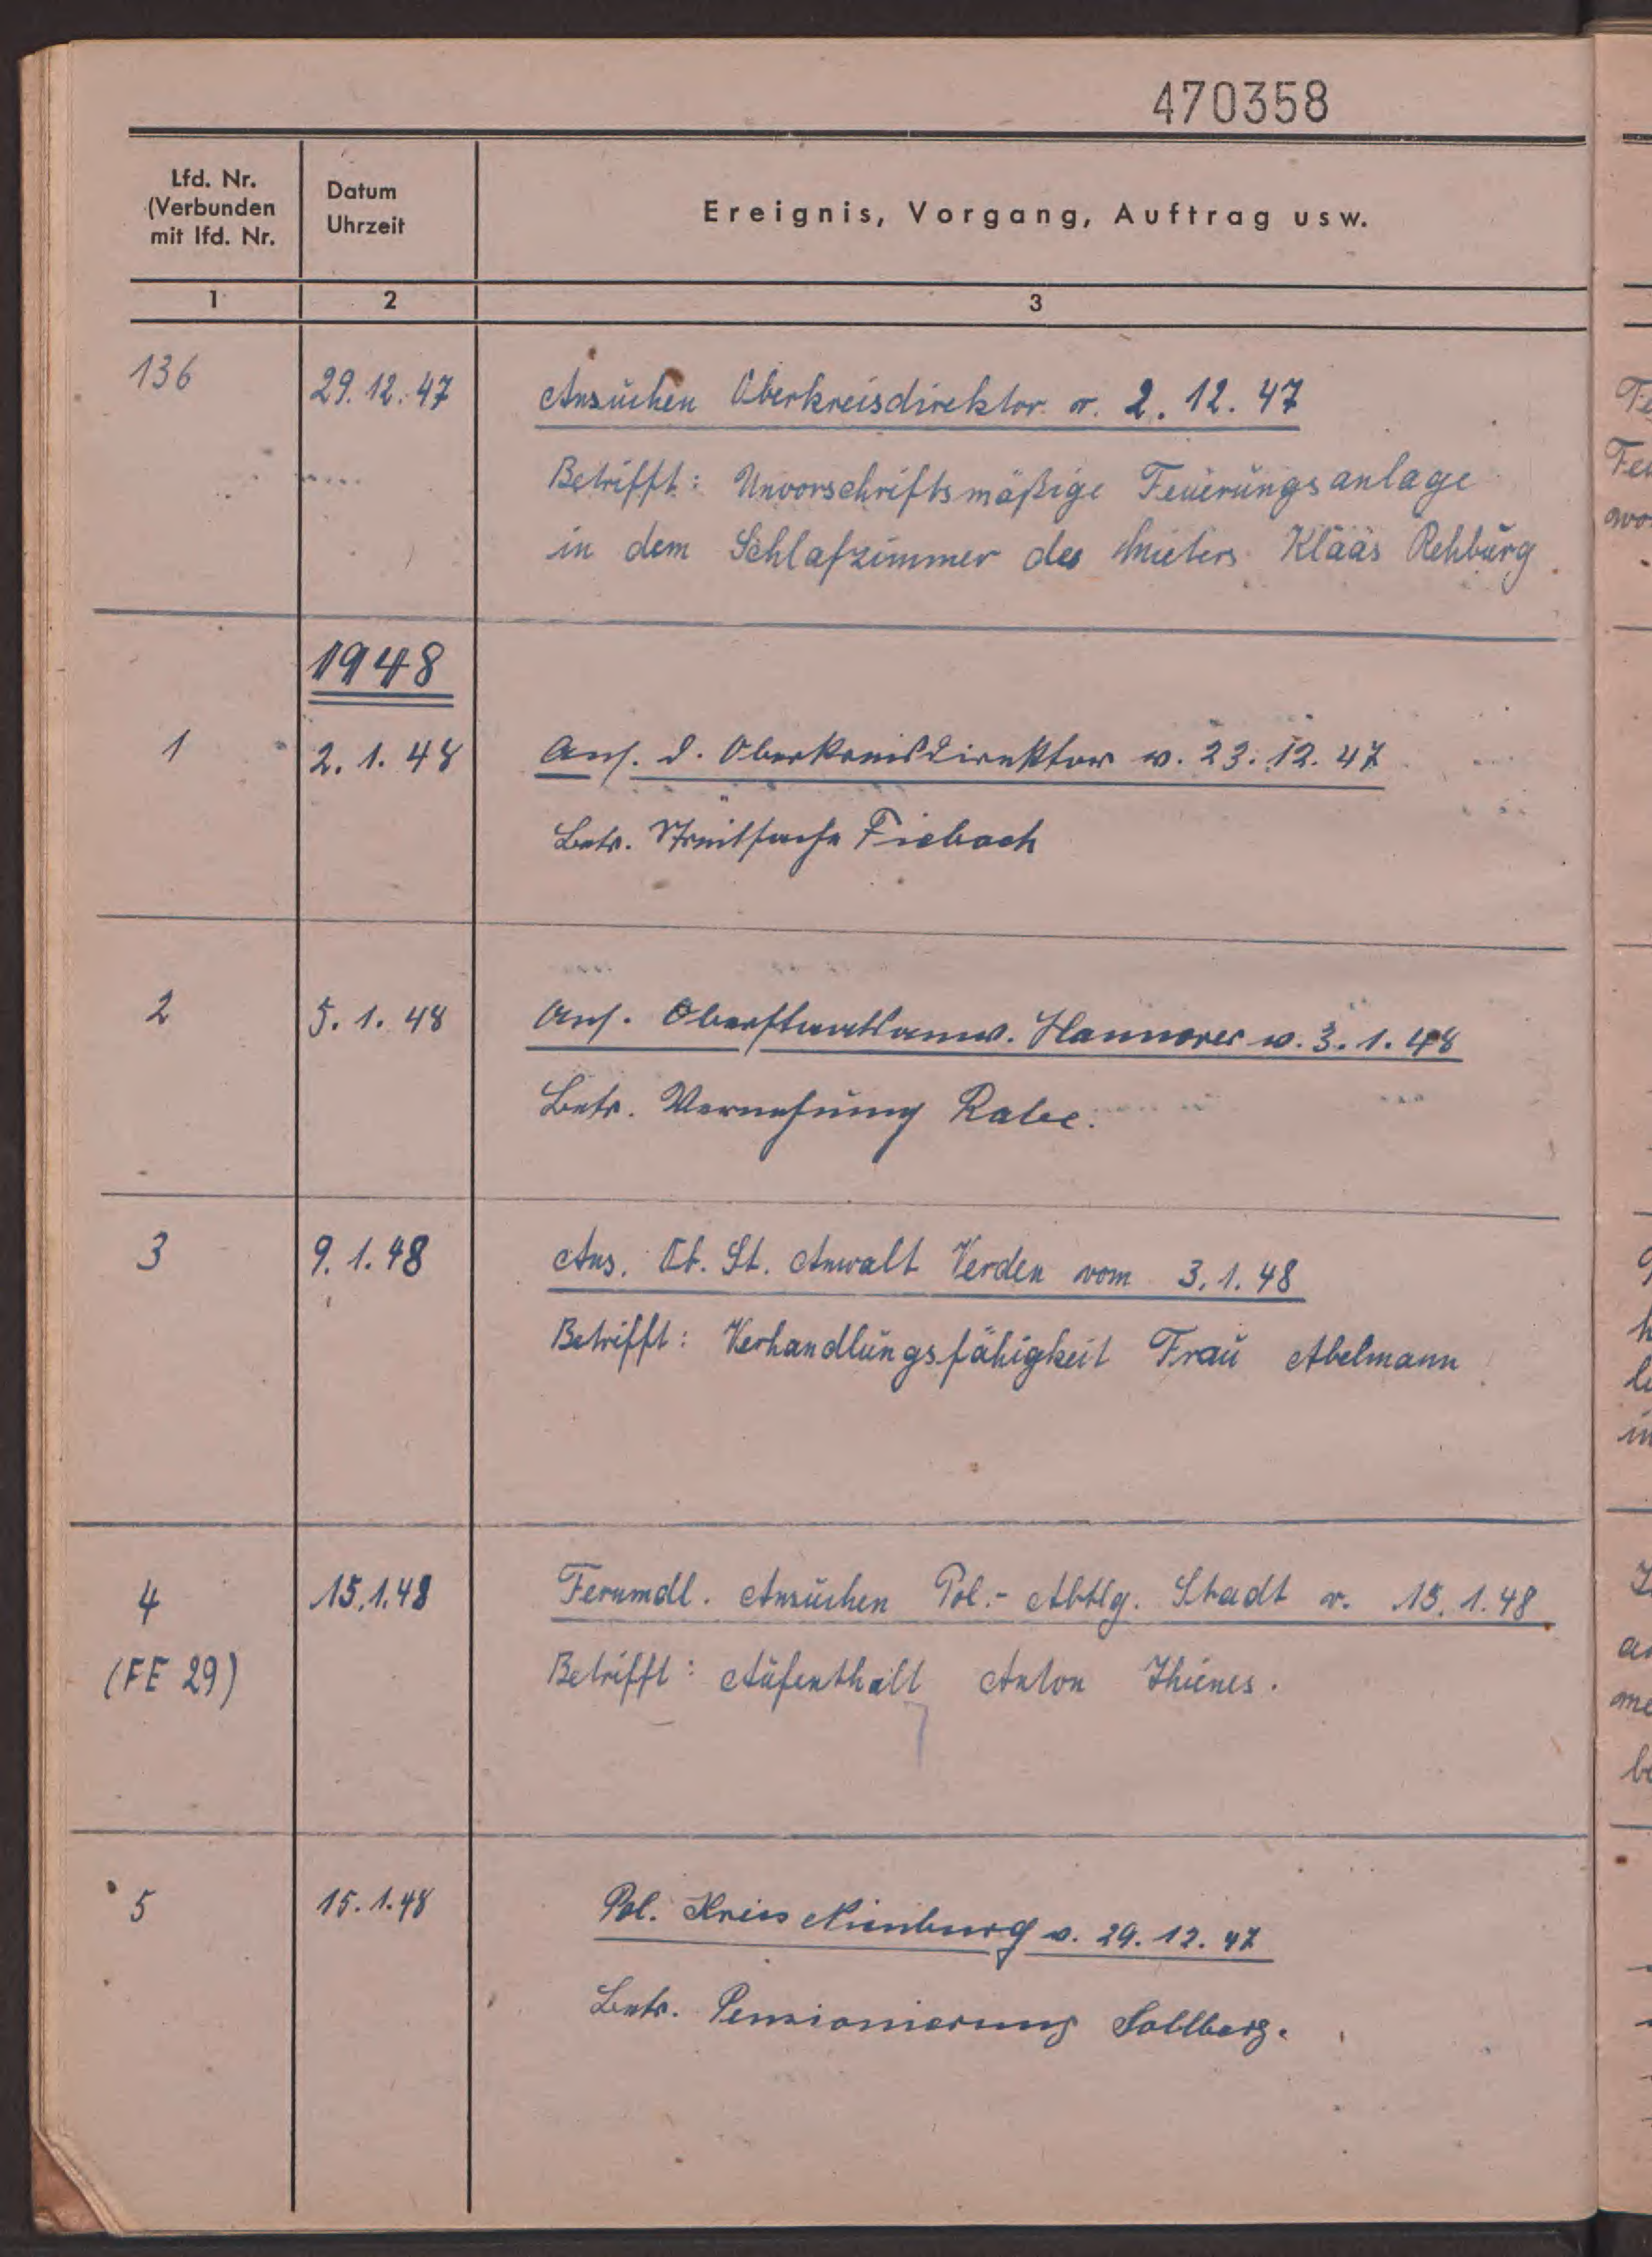 470358
Lfd. Nr.
(Verbunden
mit lfd. Nr.
Datum
Uhrzeit
Ereignis, Vorgang, Auftrag usw.
1 2 3
136 29.12.47 Ansuchen Oberkreisdirektor v. 2.12.47
Betrifft: Unvorschriftsmäßige Feuerungsanlage
in dem Schlafzimmer des Mieters Klaas Rehburg
1948
1 2.1.48 Ans. d. Oberkreisdirektor v. 23.12.47
Betr. Streitsache Fiebach
2 5.1.48 Ans. Oberstaatsanw. Hannover v. 3.1.48
Betr. Vernehmung Rabe.
3 9.1.48 Ans. Ob. St. Anwalt Verden vom 3.1.48
Betrifft: Verhandlungsfähigkeit Frau Abelmann
4 15.1.48 Fernmdl. Ansuchen Pol.-Abtlg. Stadt v. 15.1.48
(FE 29) Betrifft: Aufenthalt Anton Thienes.
5 15.1.48 Pol. Kreis Nienburg v. 29.12.47
Betr. Pensionierung Sollberg.